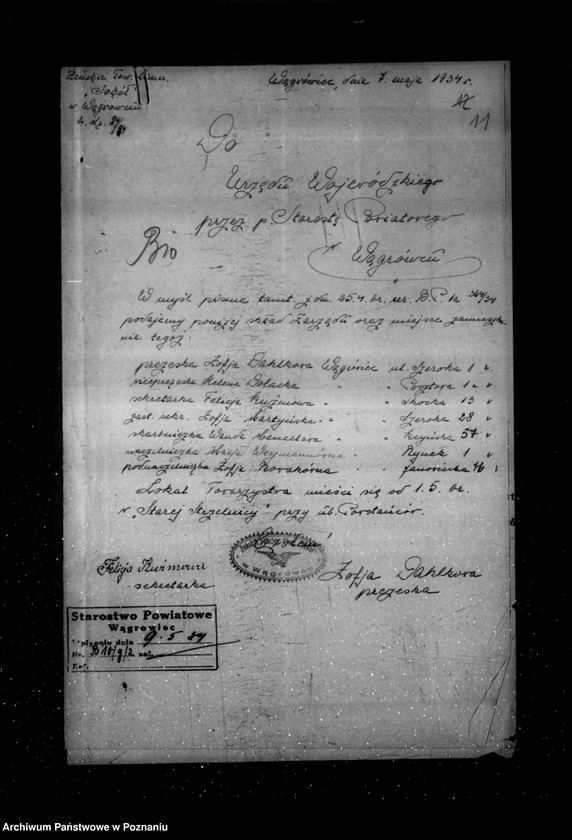 Żeńskie Tow. Gimn.
"Sokół"
w Wągrowcu
L. dz. 84/34
Wągrówiec, dnia 7. maja 1934 r.
11
Do
Urzędu Wojewódzkiego
przez p. Starostę Powiatowego
Wągrówcu
W myśl pisma tamt. z dn. 25.4. br. nr. B.P. 364/34
podajemy poniżej skład Zarządu oraz miejsce zamieszka-
nia tegoż:
prezeska Zofja Dahlkowa Wągrówiec ul. Szeroka 1
viceprezeska Helena " " 1
sekretarka Felicja Kuźmowa " " Skocka 13
zast. sekr. Zofja Martyńska " " Szeroka 28
skarbniczka Wanda " " Kcyńska 57
naczelniczka " " Rynek 1
podnaczelniczka Zofja Nowakówna " Janowiecka
Lokal Towarzystwa mieści się od 1.5. br.
w "Starej Strzelnicy" przy ul. Powstańców.
w Wągrowcu
Felicja Kuźmowa
sekretarka
Zofja Dahlkowa
prezeska
Starostwo Powiatowe
Wągrowiec
Wpłynęło dnia 9.5.34
Nr. zał.
Ref.
Archiwum Państwowe w Poznaniu